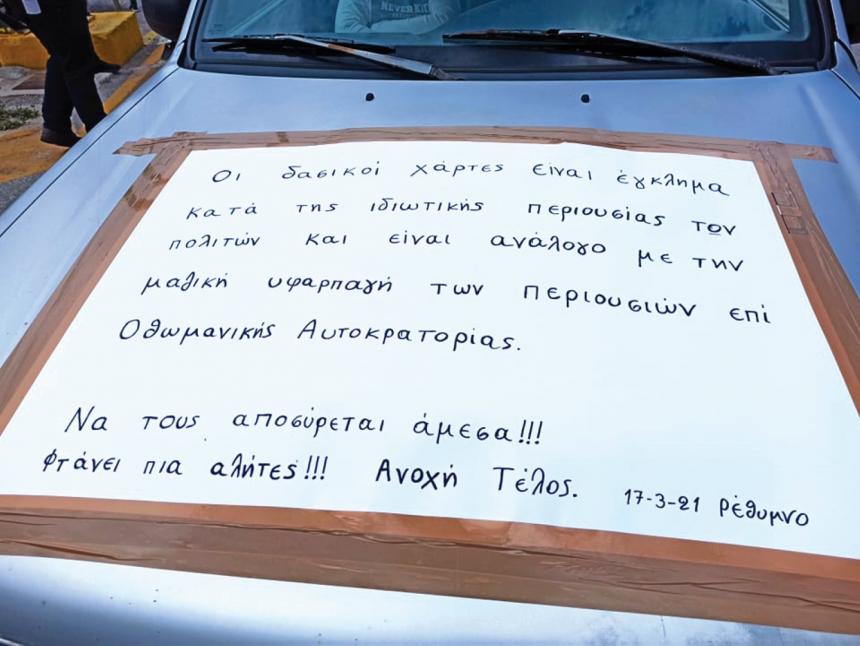 NEVER
Οι δασικοί χάρτες είναι έγκλημα
κατά της ιδιωτικής περιουσίας των
πολιτών και είναι ανάλογο με την
μαζική υφαρπαγή των περιουσιών επί
Οθωμανικής Αυτοκρατορίας.
Να τους αποσύρεται άμεσα!!!
Φτάνει πια αλήτες!!! Ανοχή Τέλος. 17-3-21 Ρέθυμνο